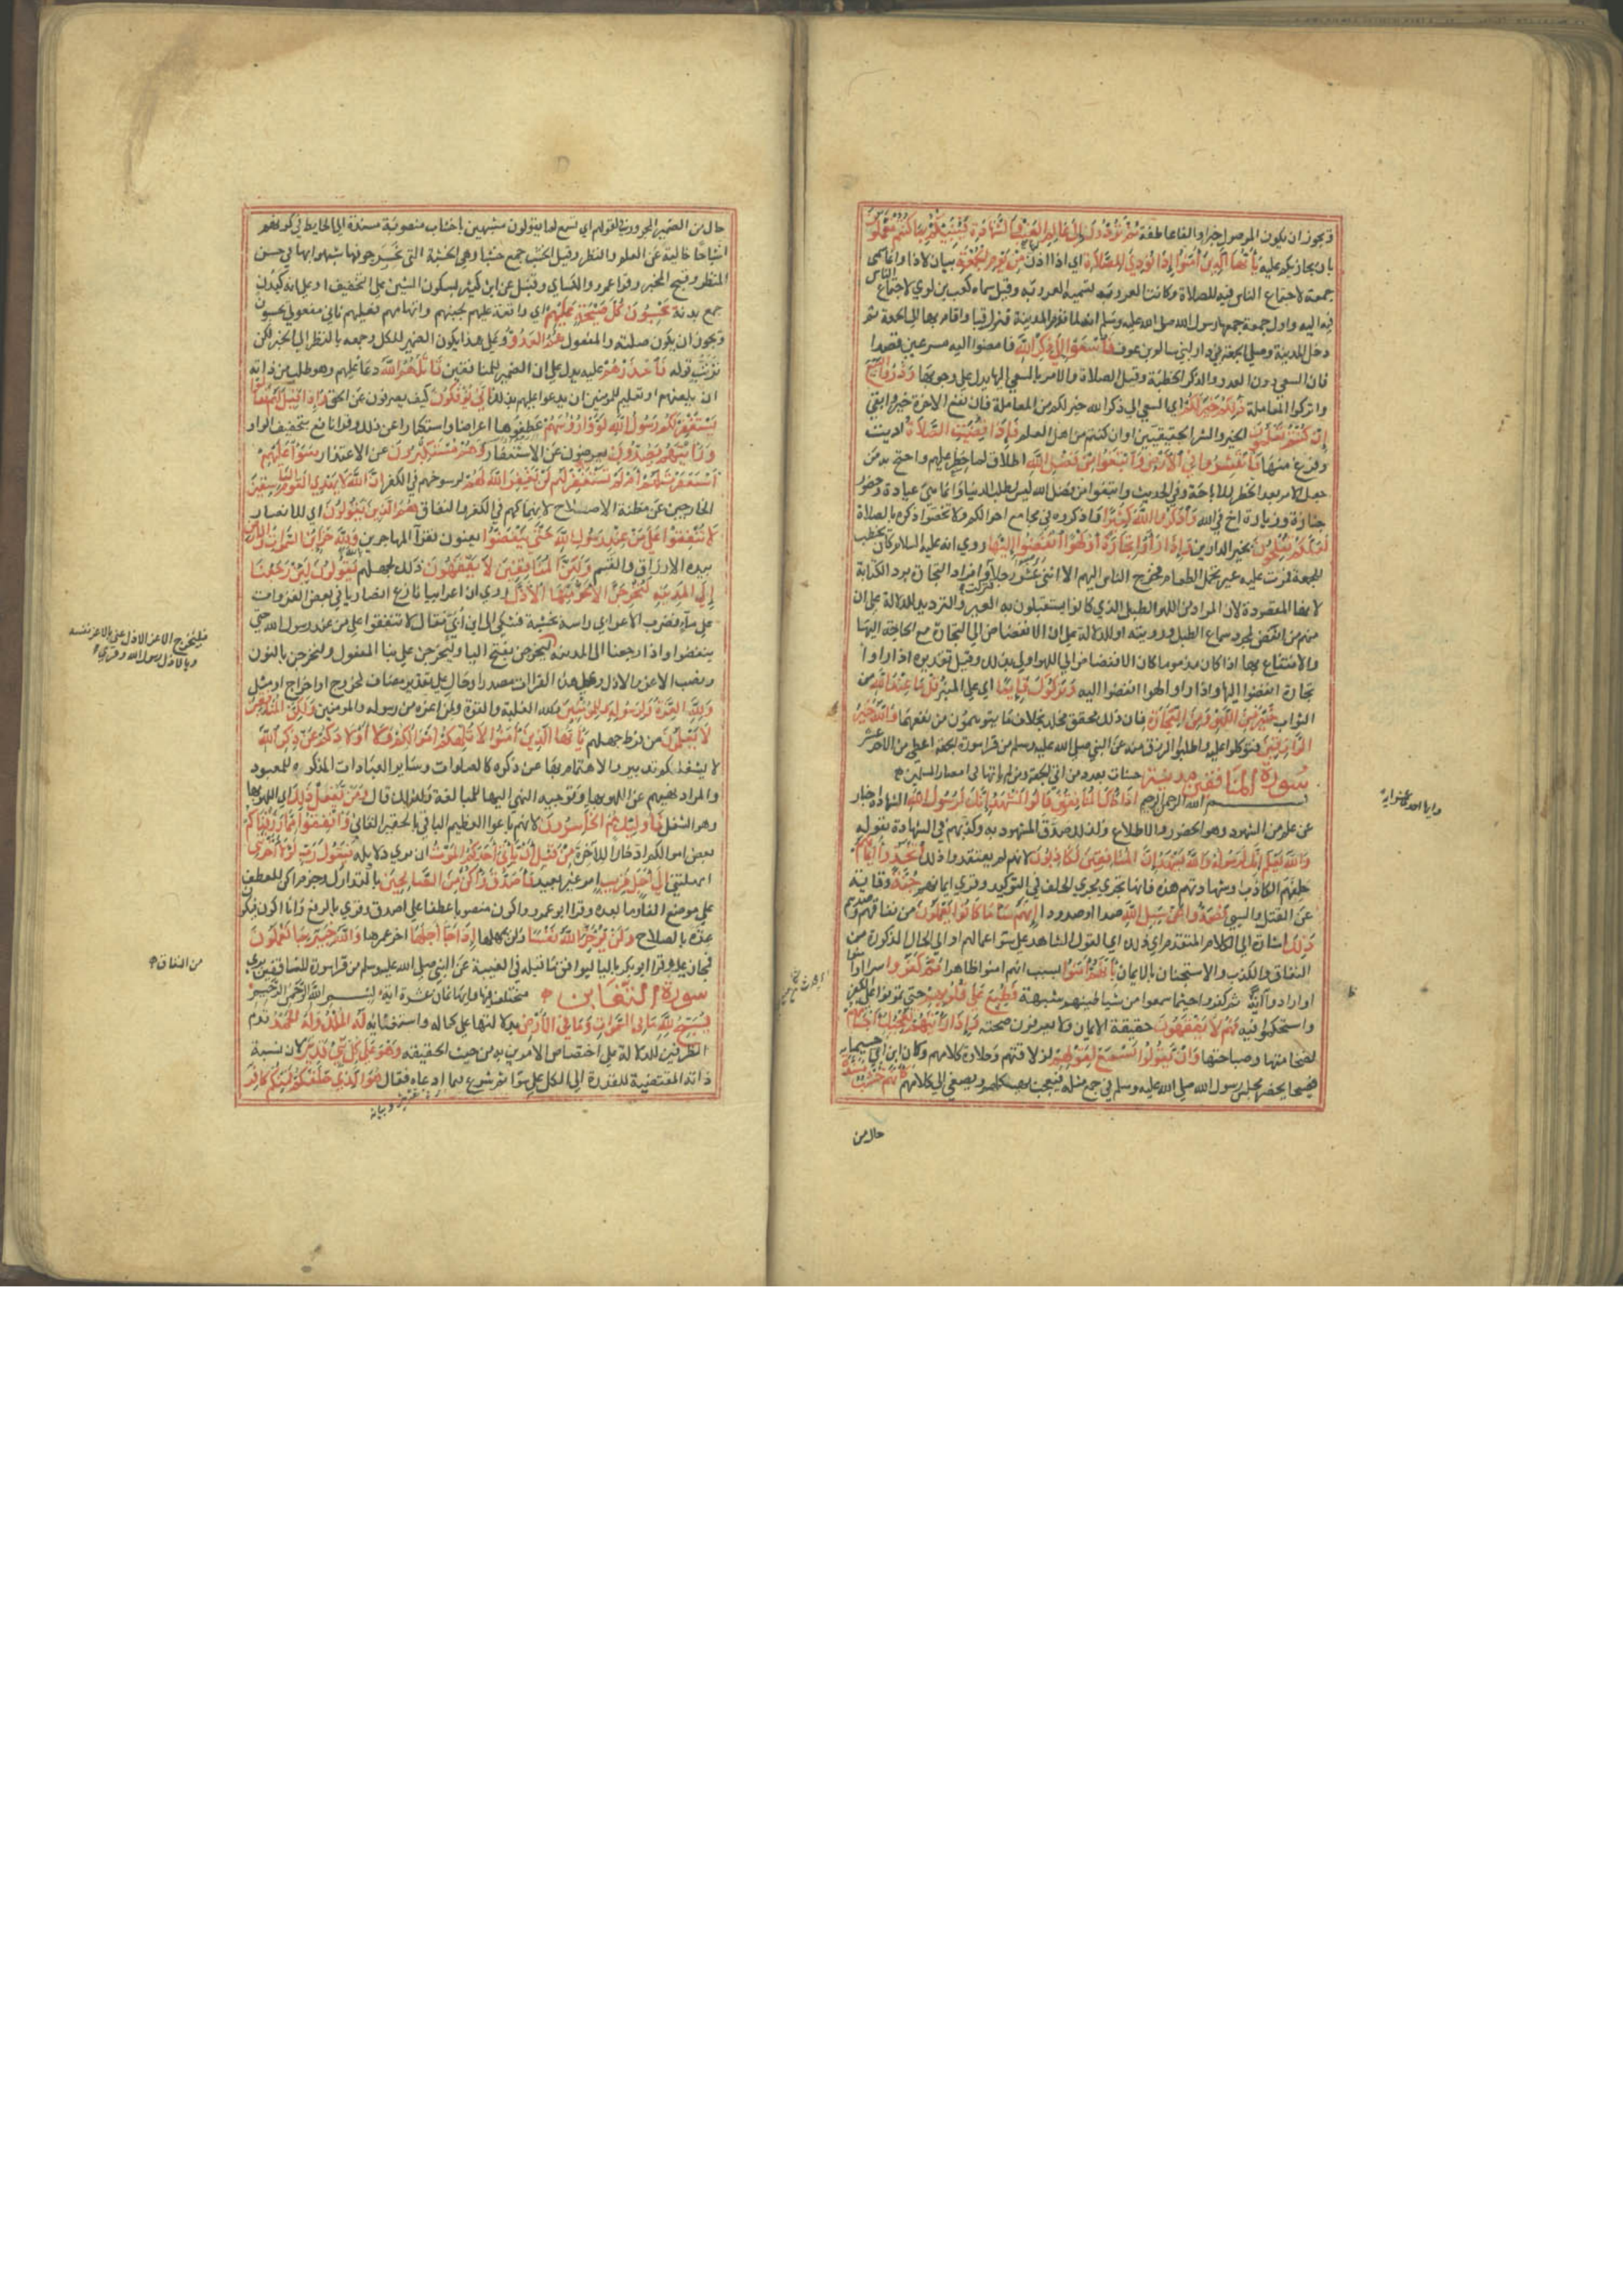 ويجوز ان يكون الموصول خبرا والفا عاطفة ثم تردون الى عالم الغيب والشهادة فينبئكم بما كنتم تعملون
بان يجازيكم عليه يا ايها الذين آمنوا اذا نودي للصلاة اي اذا اذن من يوم الجمعة بيان لاذا وانما سمى
جمعة لاجتماع الناس فيه للصلاة وكانت العرب تسميه العروبة وقيل سماه كعب بن لوي لاجتماع الناس
فيه اليه واول جمعة جمعها رسول الله صلى الله عليه وسلم انه لما قدم المدينة فنزل قبا واقام بها الى الجمعة ثم
دخل المدينة وصلى الجمعة في دار لبني سالم بن عوف فاسعوا الى ذكر الله فامضوا اليه مسرعين قصدا
فان السعي دون العدو والذكر الخطبة وقيل الصلاة والامر بالسعي اليها يدل على وجوبها وذروا البيع
واتركوا المعاملة ذلكم خير لكم اي السعي الى ذكر الله خير لكم من المعاملة فان نفع الاخرة خير وابقى
ان كنتم تعلمون الخير والشر الحقيقيين او ان كنتم من اهل العلم فاذا قضيت الصلاة اديت
وفرغ منها فانتشروا في الارض وابتغوا من فضل الله اطلاق لما حظر عليهم واحتج به من
جعل الامر بعد الحظر للاباحة وفي الحديث وابتغوا من فضل الله ليس بطلب الدنيا وانما هي عيادة وحضور
جنازة وزيارة اخ في الله واذكروا الله كثيرا واذكروه في مجامع احوالكم ولا تخصوا ذكره بالصلاة
لعلكم تفلحون بخير الدارين واذا راوا تجارة او لهوا انفضوا اليها روي انه عليه السلام كان يخطب
للجمعة فمرت عليه عير تحمل الطعام فخرج الناس اليهم الا اثني عشر رجلا فنزلت وافراد التجارة برد الكناية
لانها المقصودة لان المراد من اللهو الطبل الذي كانوا يستقبلون به العير والترديد للدلالة على ان
منهم من انفض لمجرد سماع الطبل ورويته او للدلالة على ان الانفضاض الى التجارة مع الحاجة اليها
والانتفاع بها اذا كان مذموما كان الانفضاض الى اللهو اولى بذلك وقيل تقديره اذا راوا
تجارة انفضوا اليها واذا راوا لهوا انفضوا اليه وتركوك قائما اي على المنبر قل ما عند الله من
الثواب خير من اللهو ومن التجارة فان ذلك محقق مخلد بخلاف ما يتوهمون من نفعهما والله خير
الرازقين فتوكلوا عليه واطلبوا الرزق منه عن النبي صلى الله عليه وسلم من قرا سورة الجمعة اعطي من الاجر عشر
سورة المنافقين مدنية حسنات بعدد من اتى الجمعة ومن لم ياتها في امصار المسلمين
بسم الله الرحمن الرحيم اذا جاءك المنافقون قالوا نشهد انك لرسول الله الشهادة اخبار
عن علم من الشهود وهو الحضور والاطلاع ولذلك صدق المشهود به وكذبهم في الشهادة بقوله
والله يعلم انك لرسوله والله يشهد ان المنافقين لكاذبون لانهم لم يعتقدوا ذلك اتخذوا ايمانهم
حلفهم الكاذب وشهادتهم هذه فانها تجري مجرى الحلف في التوكيد وقري ايمانهم جنة وقاية
عن القتل والسبي فصدوا عن سبيل الله صدا او صدودا انهم ساء ما كانوا يعملون من نفاقهم وصدهم
ذلك اشارة الى الكلام المتقدم اي ذلك القول الشاهد على سوا اعمالهم او الى الحال المذكورة من
النفاق والكذب والاستجنان بالايمان بانهم آمنوا بسبب انهم امنوا ظاهرا ثم كفروا سرا
او اراوا آية ثم كفروا حيثما سمعوا من شياطينهم شبهة فطبع على قلوبهم حتى تمرنوا على الكفر
واستحكموا فيه فهم لا يفقهون حقيقة الايمان ولا يعرفون صحته واذا رايتهم تعجبك اجسامهم
لضخامتها وصباحتها وان يقولوا تسمع لقولهم لذلاقتهم وحلاوة كلامهم وكان ابن ابي جسيما
فصيحا يحضر مجلس رسول الله صلى الله عليه وسلم في جمع مثله فيعجب بهيكلهم ويصغي الى كلامهم كانهم خشب مسندة
حال من
حال من الضمير المجرور في لقولهم اي تسمع لما يقولون مشبهين باخشاب منصوبة مسندة الى الحايط في كونهم
اشباحا خالية عن العلم والنظر وقيل الخشب جمع خشبا وهي الخشبة التي نخر جوفها شبهوا بها في حسن
المنظر وقبح المخبر وقرا ابو عمرو والكساي وقنبل عن ابن كثير بسكون الشين على التخفيف او على انه كبدن
جمع بدنة يحسبون كل صيحة عليهم اي واقعة عليهم لجبنهم واتهامهم فعليهم ثاني مفعولي يحسبون
ويجوز ان يكون صلته والمفعول هم العدو وعلى هذا يكون الضمير للكل وجمعه بالنظر الى الخبر لكن
ترتب قوله فاحذرهم عليه يدل على ان الضمير للمنافقين قاتلهم الله دعا عليهم وهو طلب من ذاته
ان يلعنهم او تعليم للمومنين ان يدعوا عليهم بذلك انى يؤفكون كيف يصرفون عن الحق واذا قيل لهم تعالوا
يستغفر لكم رسول الله لووا رؤسهم عطفوها اعراضا واستكبارا عن ذلك وقرا نافع بتخفيف الواو
ورايتهم يصدون يعرضون عن الاستغفار وهم مستكبرون عن الاعتذار سواء عليهم
استغفرت لهم ام لم تستغفر لهم لن يغفر الله لهم لرسوخهم في الكفر ان الله لا يهدي القوم الفاسقين
الخارجين عن مظنة الاصلاح لانهماكهم في الكفر والنفاق هم الذين يقولون اي للانصار
لا تنفقوا على من عند رسول الله حتى ينفضوا يعنون فقرآ المهاجرين ولله خزائن السموات والارض
بيده الارزاق والقسم ولكن المنافقين لا يفقهون ذلك لجهلهم يقولون لئن رجعنا
الى المدينة ليخرجن الاعز منها الاذل روي ان اعرابيا نازع انصاريا في بعض الغزوات
على مآء فضرب الاعرابي راسه بخشبة فشكى الى ابن ابي فقال لا تنفقوا على من عند رسول الله حتى
ينفضوا واذا رجعنا الى المدينة ليخرجن بفتح اليا وليخرجن على بنا المفعول ولنخرجن بالنون
ونصب الاعز والاذل وعلى هذه القراات مصدر او حال على تقدير مضاف كخروج او اخراج او مثل
ولله العزة ولرسوله وللمؤمنين ولله الغلبة والقوة ولمن اعزه من رسوله والمومنين ولكن المنافقين
لا يعلمون من فرط جهلهم يا ايها الذين آمنوا لا تلهكم اموالكم ولا اولادكم عن ذكر الله
لا يشغلكم تدبيرها والاهتمام بها عن ذكره كالصلوات وساير العبادات المذكرة للمعبود
والمراد نهيهم عن اللهو بها وتوجيه النهي اليها للمبالغة ولذلك قال ومن يفعل ذلك اي اللهو بها
وهو الشغل فاولئك هم الخاسرون لانهم باعوا العظيم الباقي بالحقير الفاني وانفقوا مما رزقناكم
بعض اموالكم ادخارا للاخرة من قبل ان ياتي احدكم الموت ان يرى دلايله فيقول رب لولا اخرتني
امهلتني الى اجل قريب امد غير بعيد فاصدق واكن من الصالحين بالتدارك وجزم اكن للعطف
على موضع الفا وما بعده وقرا ابو عمرو واكون منصوبا عطفا على اصدق وقري بالرفع وانا اكون فيكون
عدة بالصلاح ولن يؤخر الله نفسا ولن يمهلها اذا جاء اجلها اخر عمرها والله خبير بما تعملون
فمجاز عليه وقرا ابو بكر باليا ليوافق ما قبله في الغيبة عن النبي صلى الله عليه وسلم من قرا سورة المنافقين بري
سورة التغابن مختلف فيها وايها ثمان عشرة اية بسم الله الرحمن الرحيم
يسبح لله ما في السموات وما في الارض بدلالتها على كماله واستغنائه له الملك وله الحمد قدم
الظرفين للدلالة على اختصاص الامرين به من حيث الحقيقة وهو على كل شئ قدير لان نسبة
ذاته المقتضية للقدرة الى الكل على سوا ثم شرع فيما ادعاه فقال هو الذي خلقكم فمنكم كافر
ليخرج الاعز الاذل عنى بالاعز نفسه
وبالاذل رسول الله وقري
من النفاق